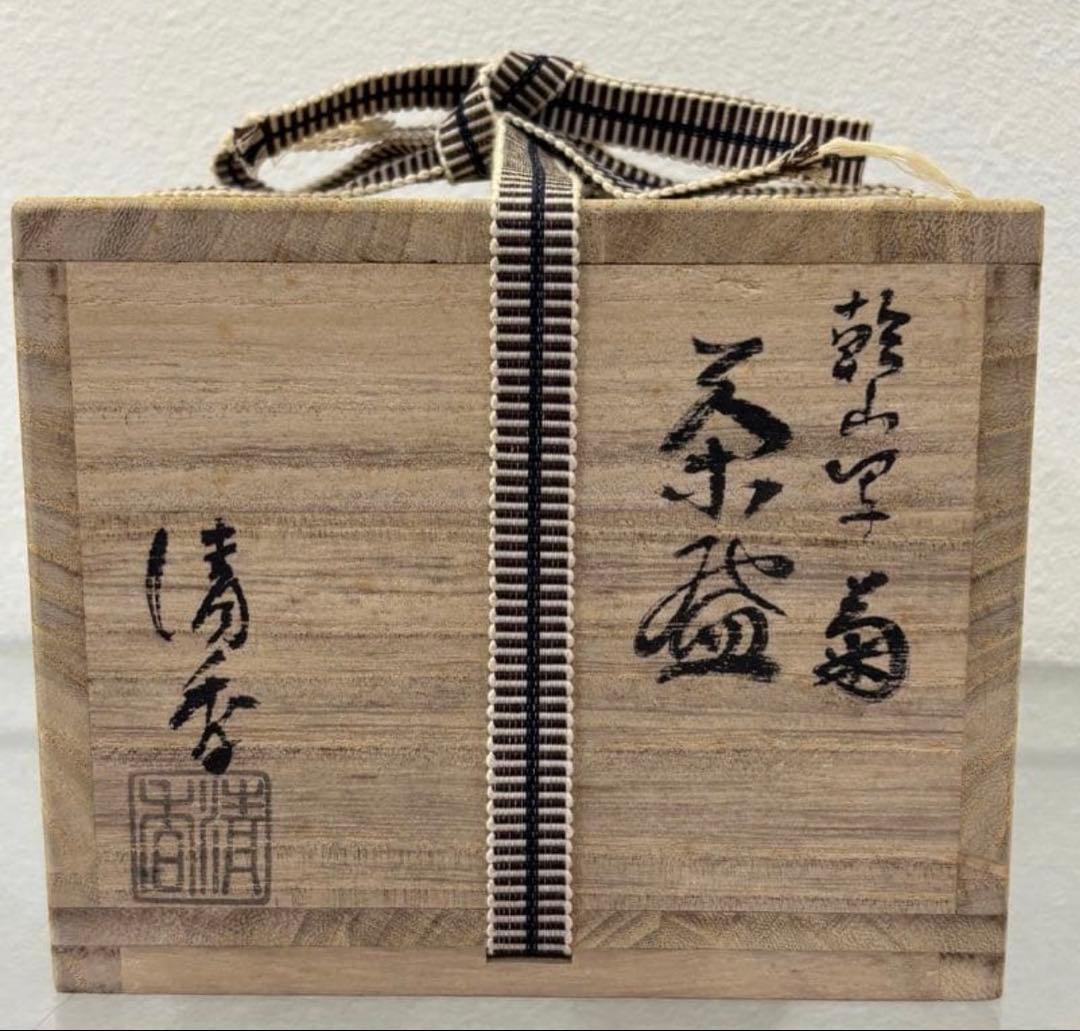 乾山写 菊
茶盌
清香
清香